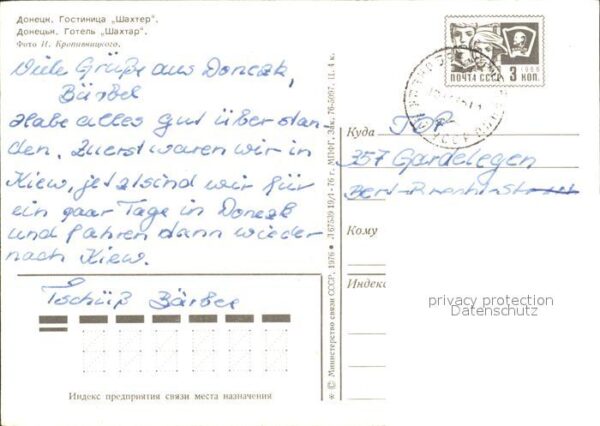 Донецк. Гостиница „Шахтер“.
Донецьк. Готель „Шахтар“.
Фото И. Кропивницкого.
Viele Grüße aus Donezk,
Bärbel
Habe alles gut überstan-
den. Zuerst waren wir in
Kiew, jetzt sind wir für
ein paar Tage in Donezk
und fahren dann wieder
nach Kiew.
Tschüß Bärbel
Индекс предприятия связи места назначения
* © Министерство связи СССР. 1976 ● Л67539 19/I-76 г. МПФГ. Зак. 76-5097. Ц. 4 к.
ПОЧТА СССР 3 КОП.
1966
Куда
357 Gardelegen
Кому
Индекс
privacy protection
Datenschutz